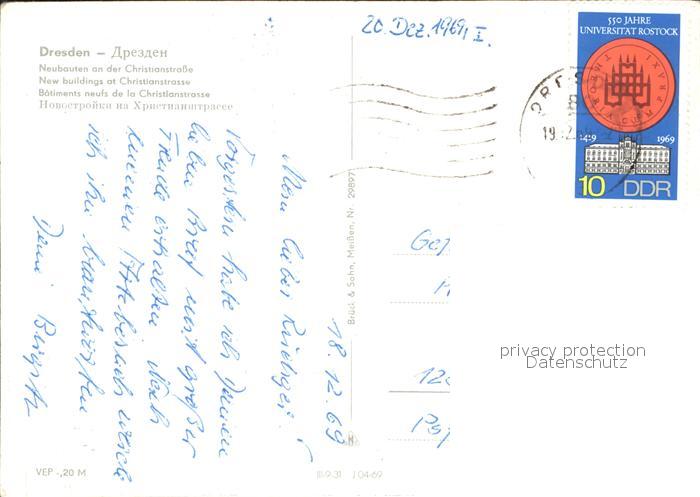 Dresden – Дрезден
Neubauten an der Christianstraße
New buildings at Christianstrasse
Bâtiments neufs de la Christianstrasse
Новостройки на Христианштрассе
20. Dez. 1969, I.
550 JAHRE
UNIVERSITÄT ROSTOCK
1419 1969
10 DDR
18. 12. 69
Mein lieber Rüdiger!
Vorgestern habe ich Deinen
lieben Brief mit großer
Freude erhalten. Nach
meinem werde
ich ihn beantworten
Deine Birgit
Brück & Sohn, Meißen, Nr. 29897
privacy protection
Datenschutz
VEP -,20 M
III-9-31 J 04-69